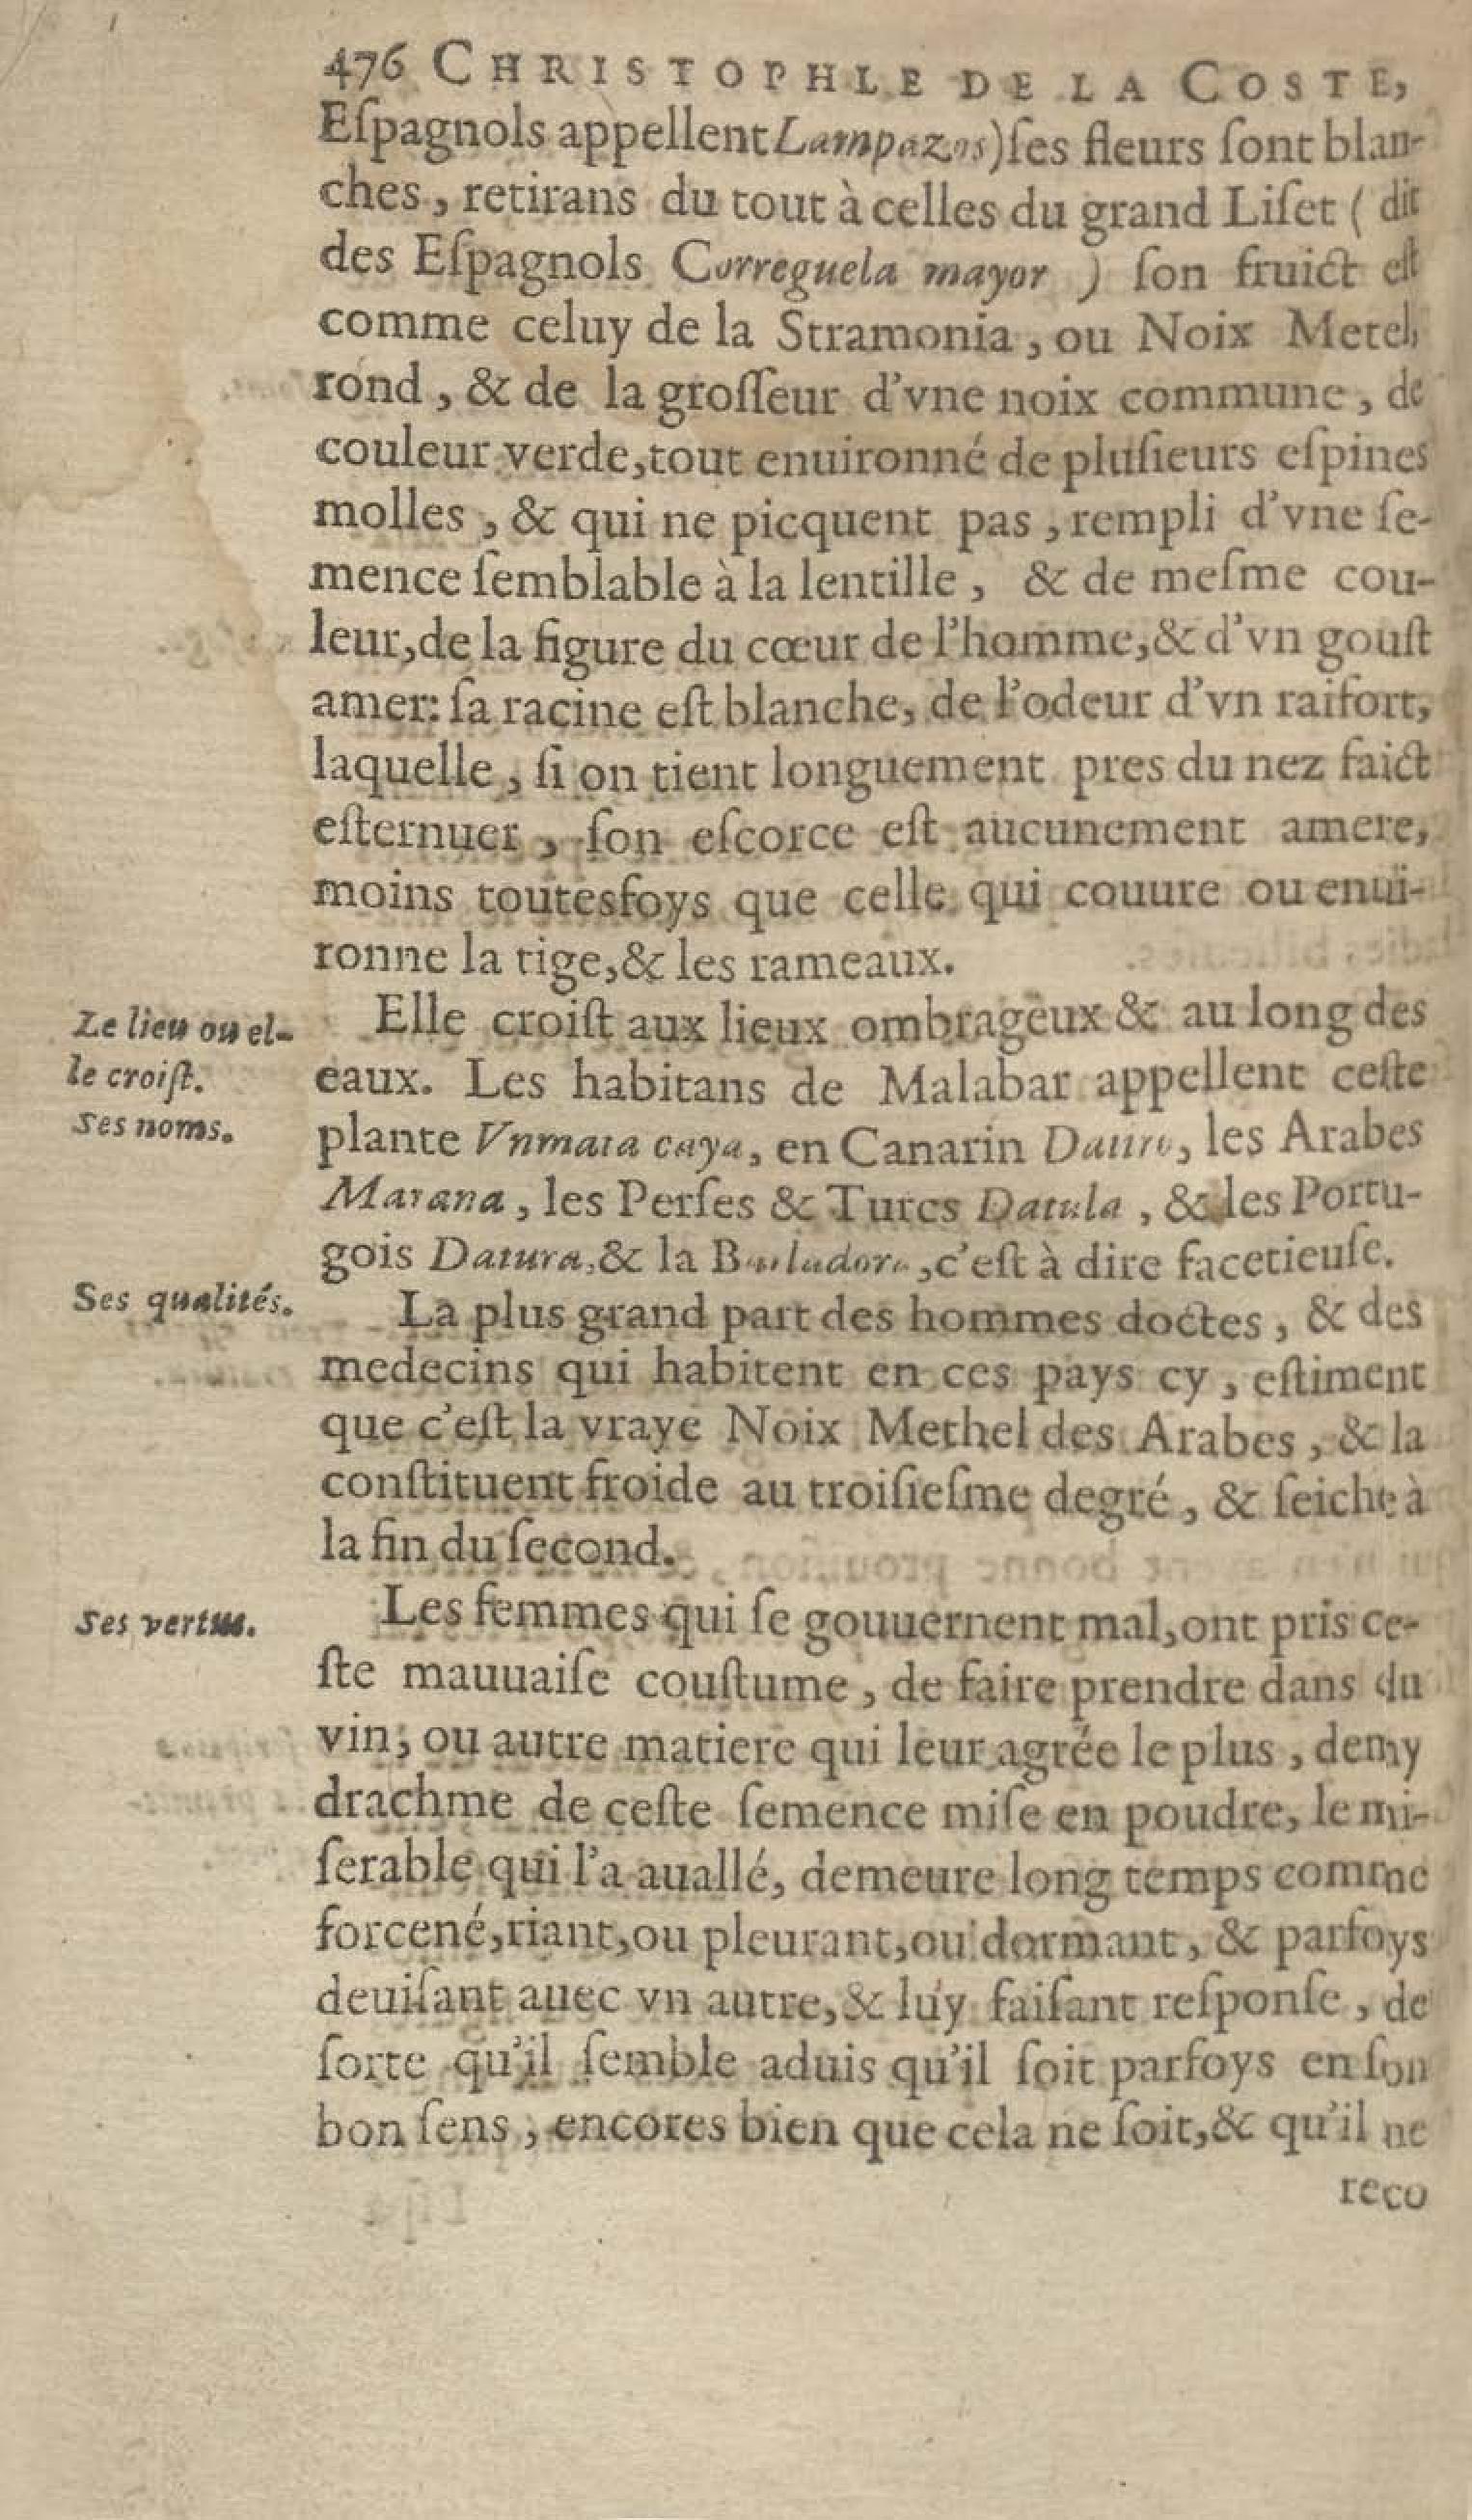 476 CHRISTOPHLE DE LA COSTE,
Eſpagnols appellent Lampazos) ſes fleurs ſont blan-
ches, retirans du tout à celles du grand Liſet ( dit
des Eſpagnols Correguela mayor ) ſon fruict eſt
comme celuy de la Stramonia, ou Noix Metel,
rond, & de la groſſeur d'vne noix commune, de
couleur verde, tout enuironné de pluſieurs eſpines
molles, & qui ne picquent pas, rempli d'vne ſe-
mence ſemblable à la lentille, & de meſme cou-
leur, de la figure du cœur de l'homme, & d'vn gouſt
amer: ſa racine eſt blanche, de l'odeur d'vn raifort,
laquelle, ſi on tient longuement pres du nez faict
eſternuer, ſon eſcorce eſt aucunement amere,
moins toutesfoys que celle qui couure ou enui-
ronne la tige, & les rameaux.
Le lieu ou el-
le croiſt.
Elle croiſt aux lieux ombrageux & au long des
eaux. Les habitans de Malabar appellent ceſte
Ses noms.
plante Vnmata caya, en Canarin Datiro, les Arabes
Marana, les Perſes & Turcs Datula, & les Portu-
gois Datura, & la Burladora, c'eſt à dire facetieuſe.
Ses qualités.
La plus grand part des hommes doctes, & des
medecins qui habitent en ces pays cy, eſtiment
que c'eſt la vraye Noix Methel des Arabes, & la
conſtituent froide au troiſieſme degré, & ſeiche à
la fin du ſecond.
Ses vertus.
Les femmes qui ſe gouuernent mal, ont pris ce-
ſte mauuaiſe couſtume, de faire prendre dans du
vin, ou autre matiere qui leur agrée le plus, demy
drachme de ceſte ſemence miſe en poudre, le mi-
ſerable qui l'a auallé, demeure long temps comme
forcené, riant, ou pleurant, ou dormant, & parfoys
deuiſant auec vn autre, & luy faiſant reſponſe, de
ſorte qu'il ſemble aduis qu'il ſoit parfoys en ſon
bon ſens, encores bien que cela ne ſoit, & qu'il ne
reco